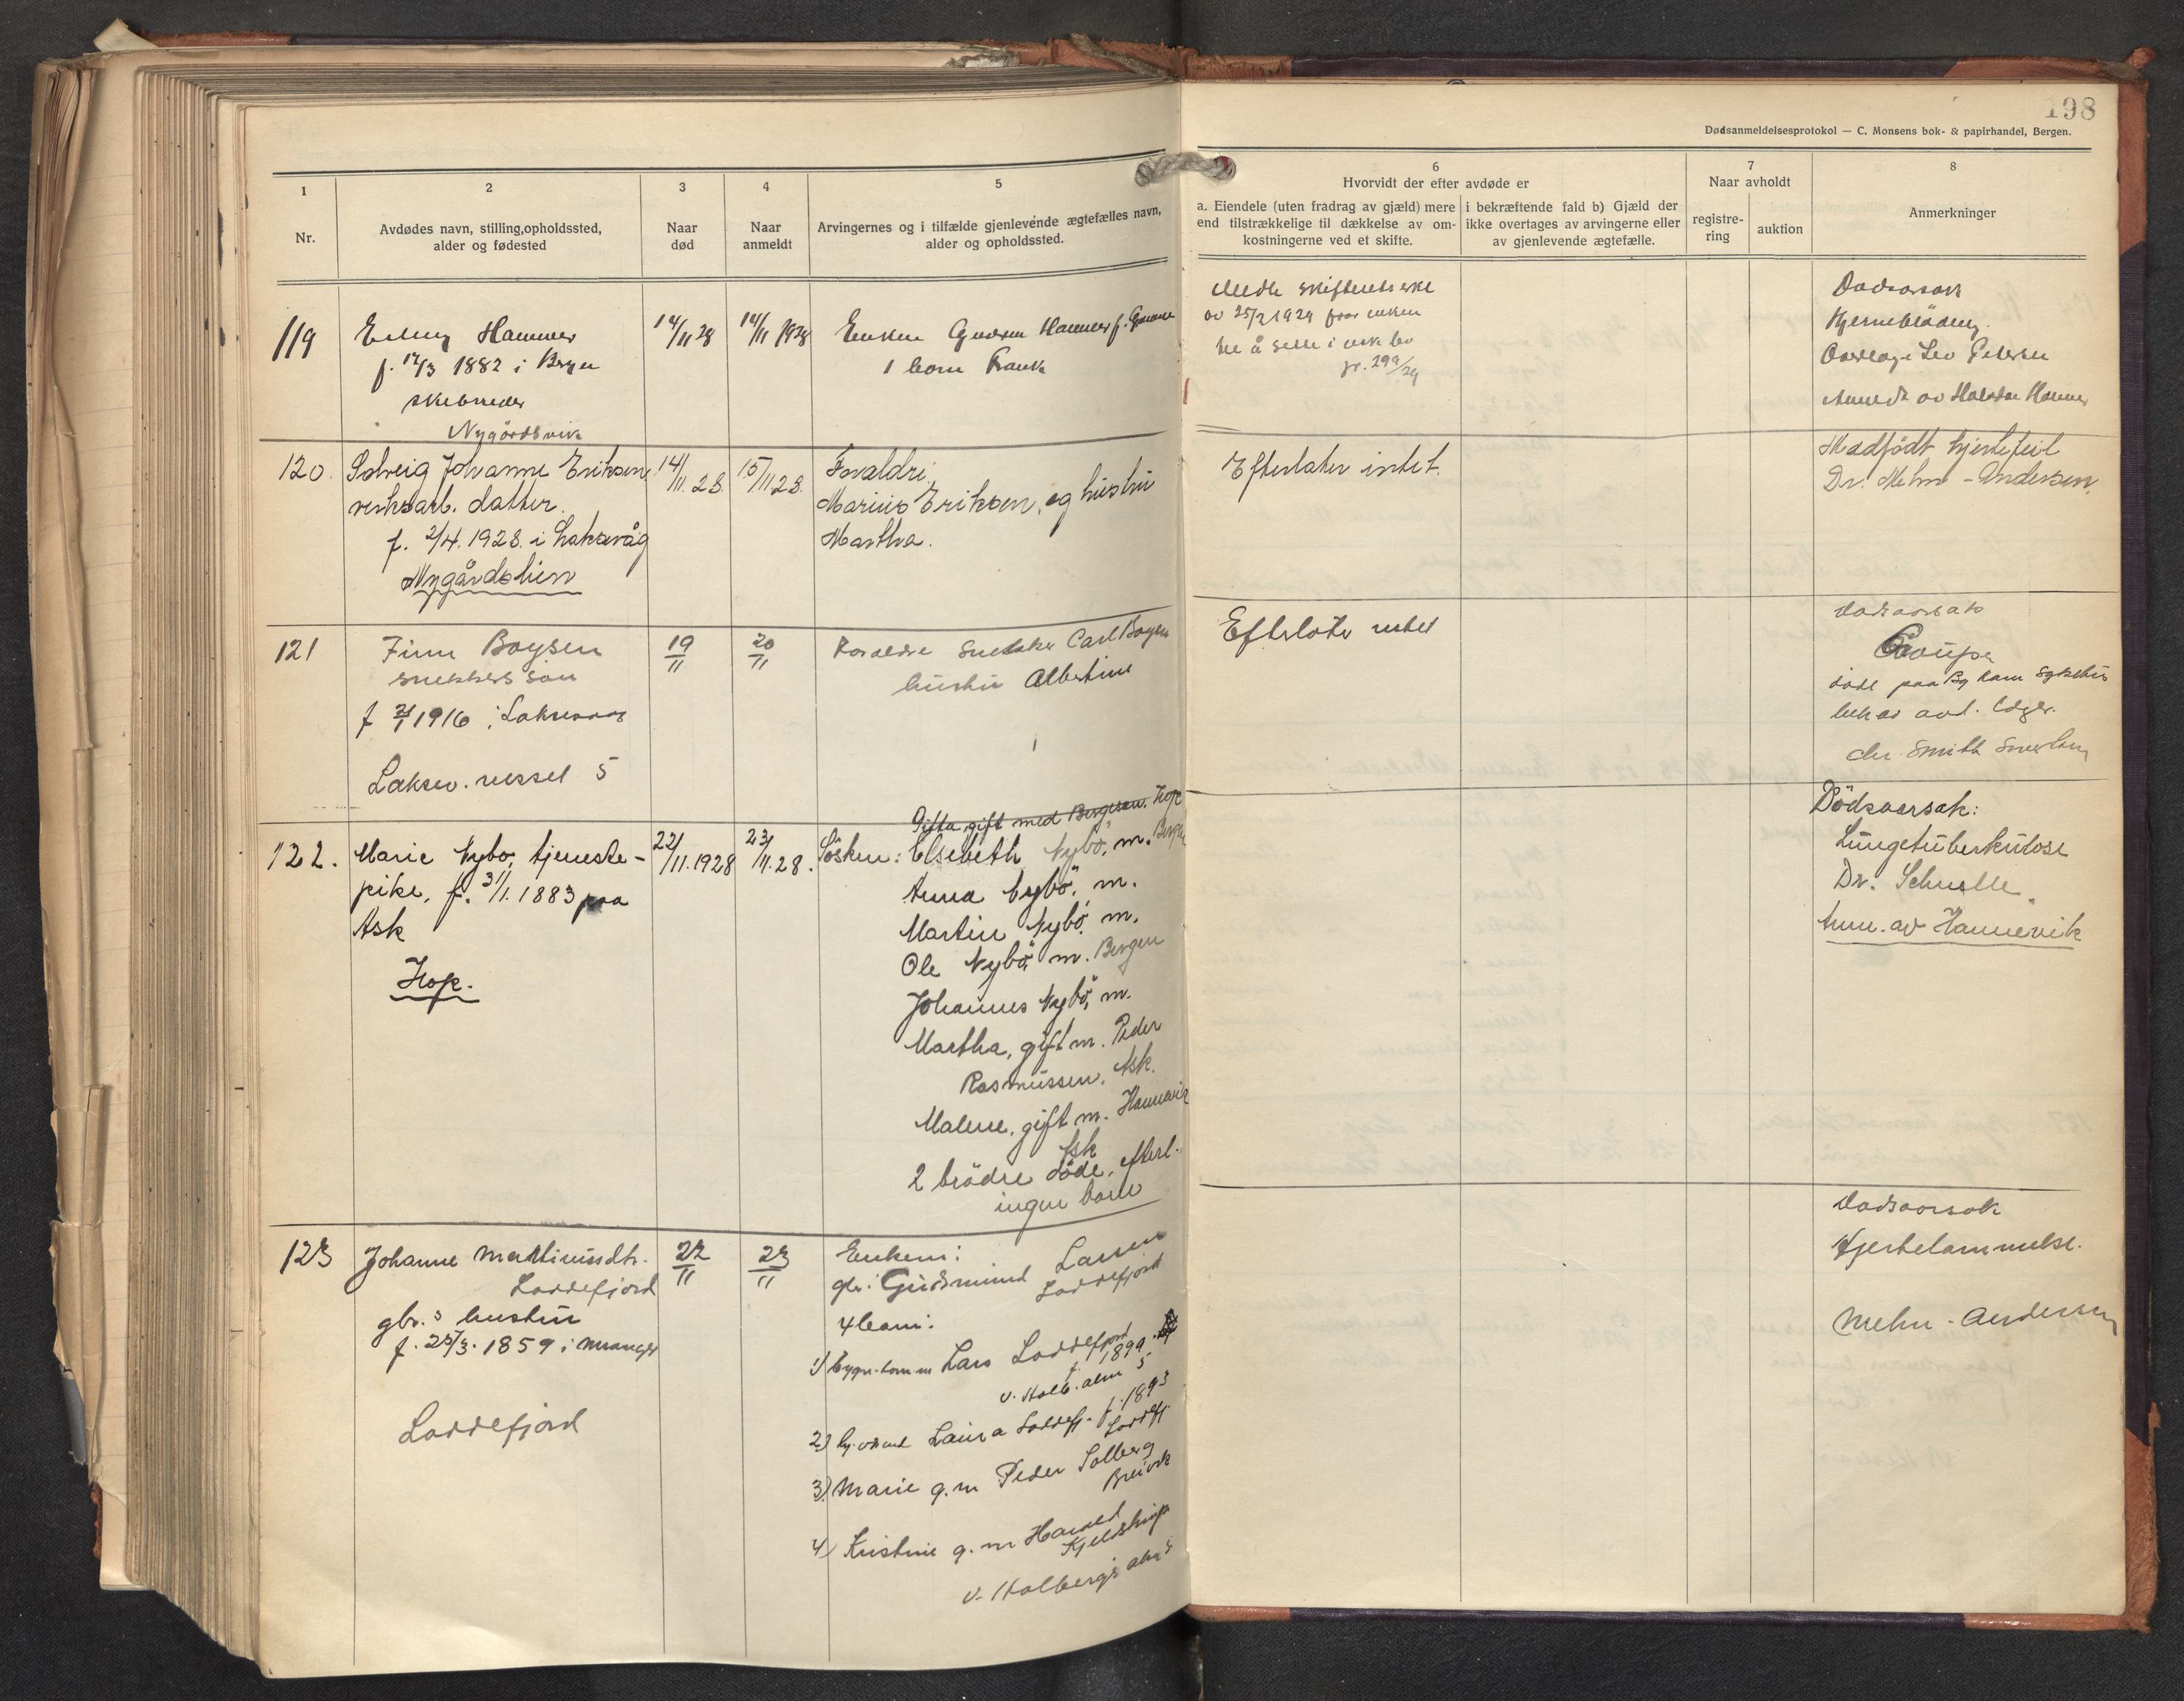 198
Dødsanmeldelsesprotokol — C. Monsens bok- & papirhandel, Bergen.
1
Nr.
2
Avdødes navn, stilling, opholdssted,
alder og fødested
3
Naar
død
4
Naar
anmeldt
5
Arvingernes og i tilfælde gjenlevende ægtefælles navn,
alder og opholdssted.
6
Hvorvidt der efter avdøde er
a. Eiendele (uten fradrag av gjæld) mere
end tilstrækkelige til dækkelse av om-
kostningerne ved et skifte.
i bekræftende fald b) Gjæld der
ikke overtages av arvingerne eller
av gjenlevende ægtefælle.
7
Naar avholdt
registre-
ring
auktion
8
Anmerkninger
119
Hammer
f. 17/3 1882 i Bergen
Nygårdsvik
14/11 28
14/11 1928
Enken Gudrun Hammer f.
1 barn Frank
av 25/2 1929 faar enken
jr. 299/29
Dødsaarsak
Hjerneblødning.
Anmeldt av Hammer
120.
Solveig Johanne Eriksen
verksarb. datter.
f. 2/4. 1928. i Laksevåg
Nygårdslien
14/11. 28.
15/11 28.
Foreldre:
Marius Eriksen, og hustru
Martha.
Efterlater intet.
Medfödt hjertefeil
Dr. Mehn-Andersen.
121
Finn Boysen
snekkers sön
f 1916 i Laksevaag
Laksev. 5
19/11
20/11
Foreldre Snekker Carl Boysen
hustru Albertine
Efterlater intet
Dødsaarsak
Croup
døde paa Bg kom sykehus
Smith
122.
Marie Nybö, tjeneste-
pike, f. 31/1. 1883 paa
Ask
Hop.
22/11. 1928
23/11. 28.
Gifta, gift med Bergesen. Hop
Sösken: Elsebeth Nybö, m. Bergen
Anna Nybö, m.
Martin Nybö, m.
Ole Nybö, m. Bergen
Johannes Nybö, m.
Martha, gift m. Peder
Rasmussen, Ask.
Malene, gift m. Hannevik
Ask
2 brödre döde, efterl.
ingen barn
Dödsaarsak:
Lungetuberkulose
Dr. Schnelle.
Anm. av Hannevik
123
Johanne Martinusdtr.
Loddefjord
gbr.s hustru
f. 1859 i Manger
Loddefjord
22/11
23/11
Enkem:
gbr. Gudmund Larsen
Loddefjord
4 barn:
1) Lars Loddefjord
f. 1899
v. Holb. alm
2) Laura Loddefj. f. 1893
Loddefj
3) Marie g. m Peder Solberg
Breivik
4) Kristine g. m Harald
v. Holbergs alm
Dødsaarsak
Hjertelammelse.
Mehn-Andersen